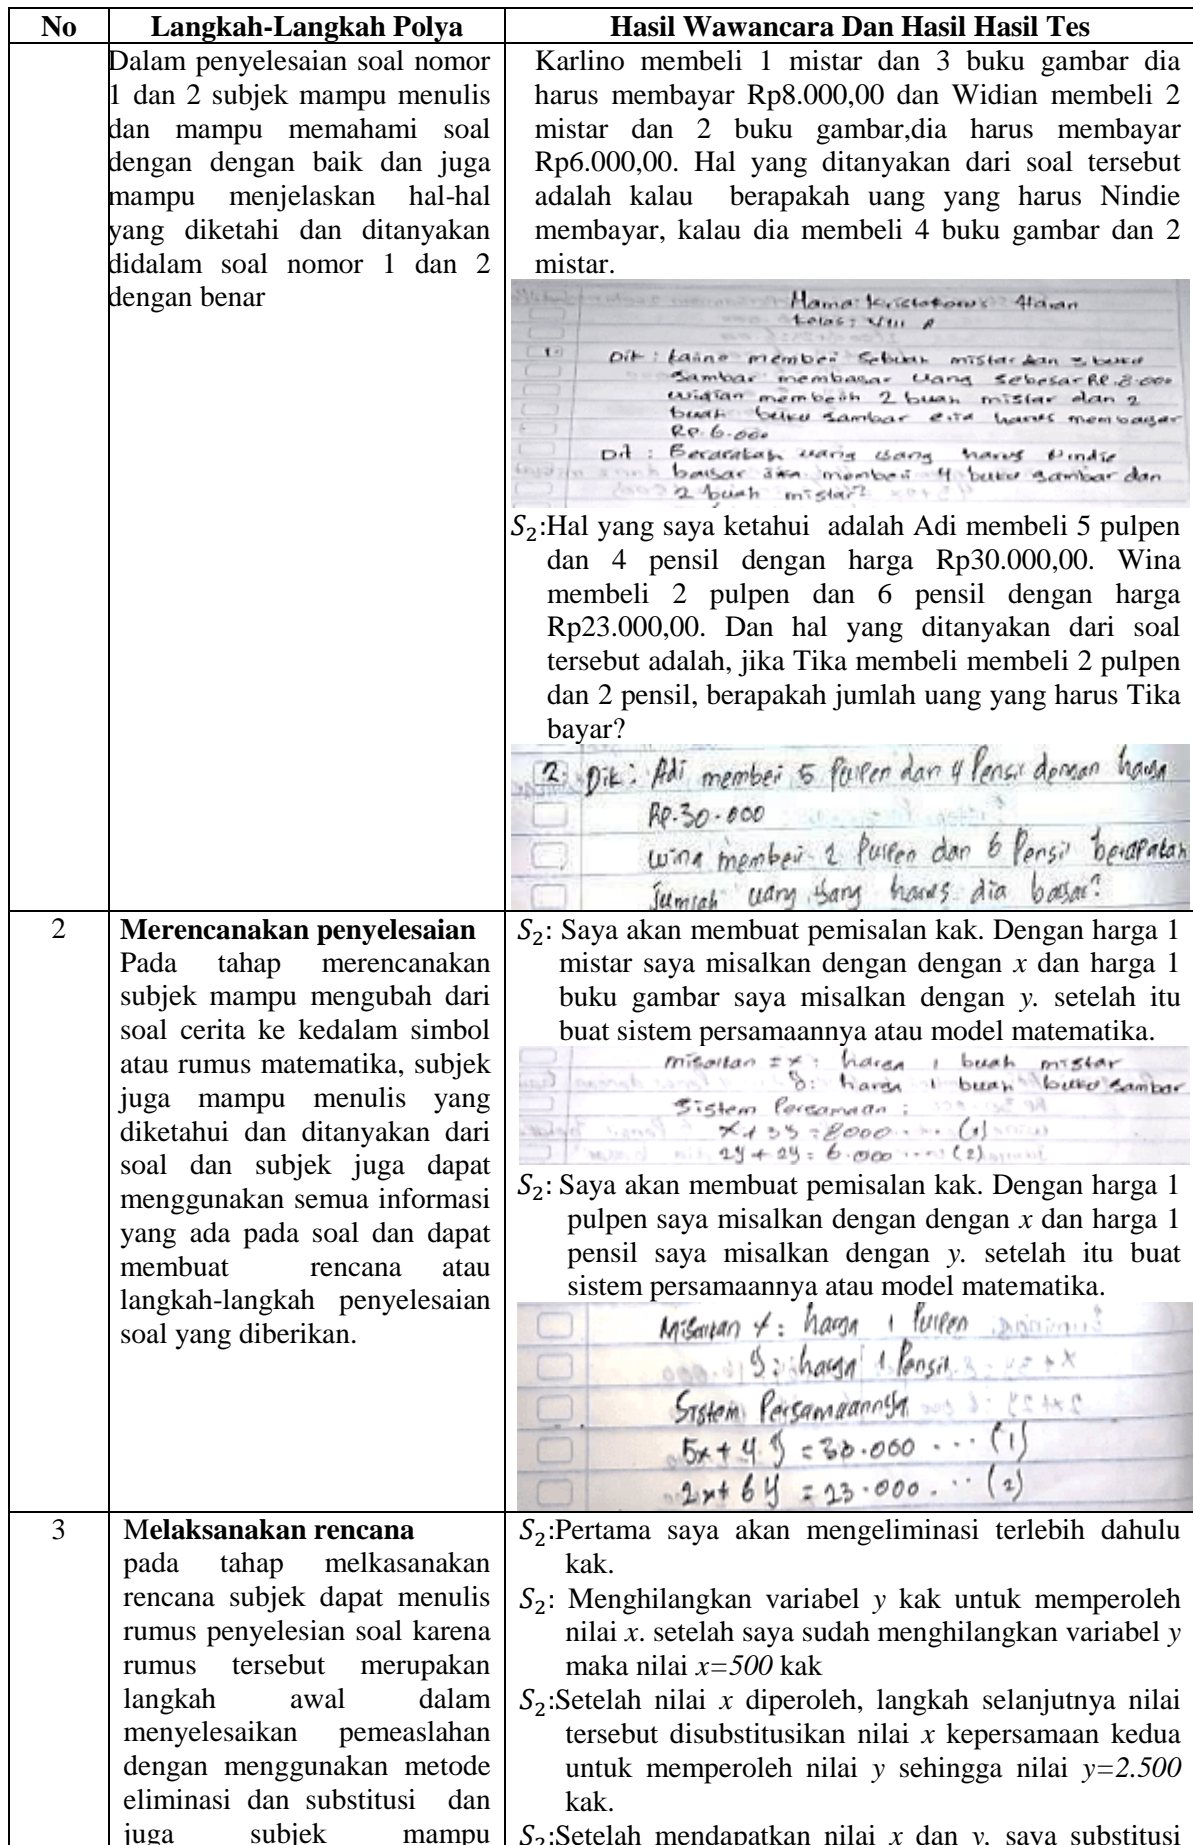 No Langkah-Langkah Polya Hasil Wawancara Dan Hasil Hasil Tes
Dalam penyelesaian soal nomor
1 dan 2 subjek mampu menulis
dan mampu memahami soal
dengan dengan baik dan juga
mampu menjelaskan hal-hal
yang diketahi dan ditanyakan
didalam soal nomor 1 dan 2
dengan benar
Karlino membeli 1 mistar dan 3 buku gambar dia
harus membayar Rp8.000,00 dan Widian membeli 2
mistar dan 2 buku gambar,dia harus membayar
Rp6.000,00. Hal yang ditanyakan dari soal tersebut
adalah kalau berapakah uang yang harus Nindie
membayar, kalau dia membeli 4 buku gambar dan 2
mistar.
Nama: Alaian
Kelas: VIII A
1. Dik: member sebuah mistar dan 3 buku
gambar uang sebesar Rp.8.000
widian 2 buah mistar dan 2
buah buku gambar harus membayar
Rp.6.000
Dit: uang yang harus Nindie
4 buku gambar dan
2 buah mistar?
S₂:Hal yang saya ketahui adalah Adi membeli 5 pulpen
dan 4 pensil dengan harga Rp30.000,00. Wina
membeli 2 pulpen dan 6 pensil dengan harga
Rp23.000,00. Dan hal yang ditanyakan dari soal
tersebut adalah, jika Tika membeli membeli 2 pulpen
dan 2 pensil, berapakah jumlah uang yang harus Tika
bayar?
2. Dik: Adi 5 dan 4 Pensil dengan harga
Rp.30.000
wina 2 dan 6 Pensil berapakah
Jumlah uang yang harus dia bayar?
2 Merencanakan penyelesaian
Pada tahap merencanakan
subjek mampu mengubah dari
soal cerita ke kedalam simbol
atau rumus matematika, subjek
juga mampu menulis yang
diketahui dan ditanyakan dari
soal dan subjek juga dapat
menggunakan semua informasi
yang ada pada soal dan dapat
membuat rencana atau
langkah-langkah penyelesaian
soal yang diberikan.
S₂: Saya akan membuat pemisalan kak. Dengan harga 1
mistar saya misalkan dengan dengan x dan harga 1
buku gambar saya misalkan dengan y. setelah itu
buat sistem persamaannya atau model matematika.
misalkan = x: harga 1 buah mistar
y: harga 1 buah buku gambar
Sistem Persamaan:
x+3y=8000....(1)
2y+2y=6.000....(2)
S₂: Saya akan membuat pemisalan kak. Dengan harga 1
pulpen saya misalkan dengan dengan x dan harga 1
pensil saya misalkan dengan y. setelah itu buat
sistem persamaannya atau model matematika.
Misalkan x: harga 1 Pulpen
y: harga 1 Pensil
Sistem Persamaannya
5x+4y=30.000...(1)
2x+6y=23.000...(2)
3 Melaksanakan rencana
pada tahap melkasanakan
rencana subjek dapat menulis
rumus penyelesian soal karena
rumus tersebut merupakan
langkah awal dalam
menyelesaikan pemeaslahan
dengan menggunakan metode
eliminasi dan substitusi dan
juga subjek mampu
S₂:Pertama saya akan mengeliminasi terlebih dahulu
kak.
S₂: Menghilangkan variabel y kak untuk memperoleh
nilai x. setelah saya sudah menghilangkan variabel y
maka nilai x=500 kak
S₂:Setelah nilai x diperoleh, langkah selanjutnya nilai
tersebut disubstitusikan nilai x kepersamaan kedua
untuk memperoleh nilai y sehingga nilai y=2.500
kak.
S₂:Setelah mendapatkan nilai x dan y, saya substitusi